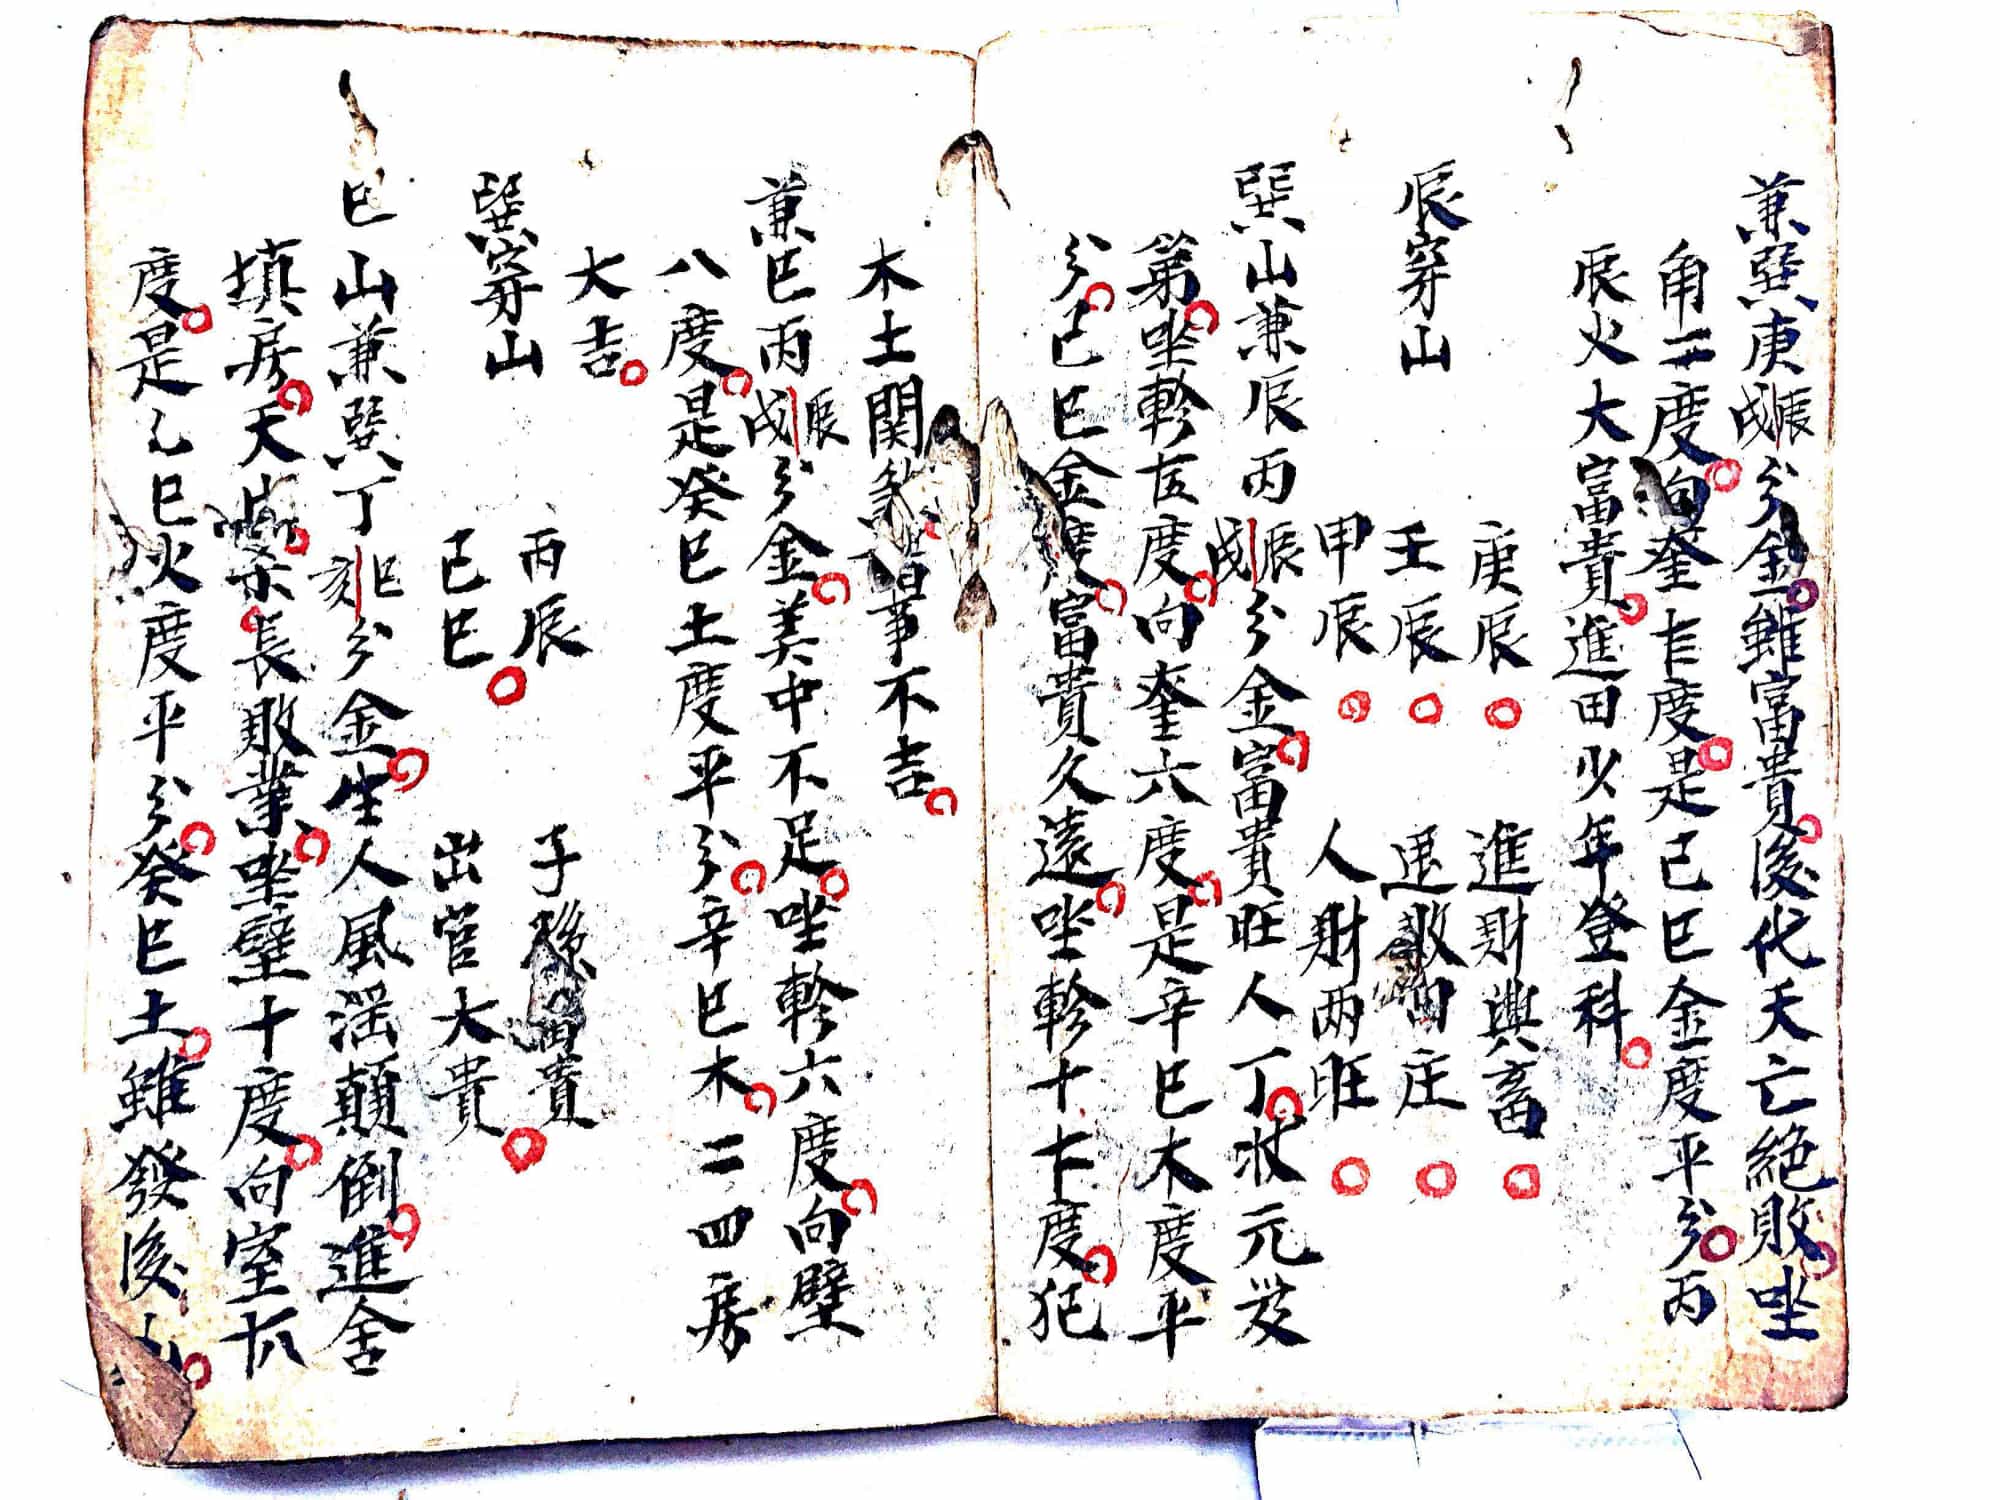 兼巽庚辰戌分金雖富貴後代夭亡絕敗坐
角二度向奎七度是己巳金度平分丙
辰火大富貴進田少年登科
辰穿山
庚辰 進財興畜
壬辰 退敗田庄
甲辰 人財兩旺
巽山兼辰丙辰戌分金富貴旺人丁狀元及
第坐軫五度向奎六度是辛巳木度平
分己巳金度富貴久遠坐軫十七度犯
木土關煞事不吉
兼巳丙辰戌分金美中不足坐軫六度向壁
八度是癸巳土度平分辛巳木二四房
大吉
巽穿山
丙辰 子孫富貴
己巳 出官大貴
巳山兼巽丁巳亥分金生人風滛顛倒進舍
填房夭長敗業坐壁十度向室十八
度是乙巳火度平分癸巳土雖發後